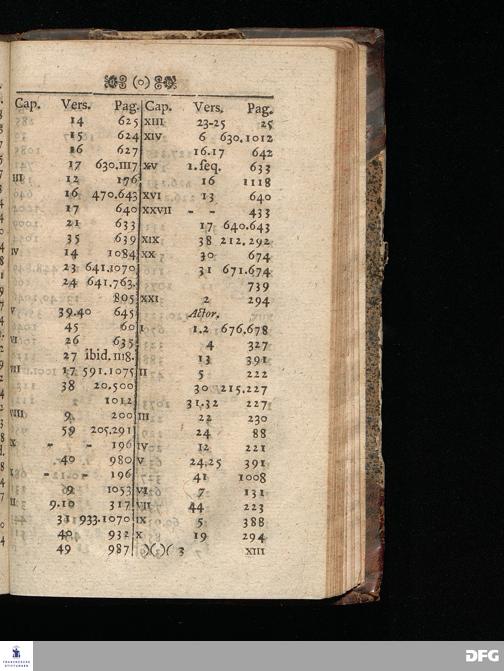 (o)
Cap. Vers. Pag. Cap. Vers. Pag.
14 625 XIII 23-25 25
15 624 XIV 6 630.1012
16 627 16.17 642
17 630.1117 XV 1.seq. 633
III 12 176 16 1118
16 470.643 XVI 13 640
17 640 XXVII - - 433
21 633 17 640.643
35 639 XIX 38 212.292
IV 14 1084 XX 30 674
23 641.1070 31 671.674
24 641.763. 739
805 XXI 2 294
V 39.40 645 Actor.
45 60 I 1.2 676.678
VI 26 635 4 327
27 ibid. 1118. 13 391
VII 17 591.1075 II 5 222
38 20.500 30 215.227
1012 31.32 227
VIII 9 200 III 22 230
59 205.291 24 88
X - - 196 IV 12 221
40 980 V 24.25 391
- - 196 41 1008
9 1053 VI 7 131
9.10 317 VII 44 223
31 933.1070 IX 5 388
40 932 X 19 294
49 987 )( )( 3 XIII
FRANCKESCHE
STIFTUNGEN
DFG